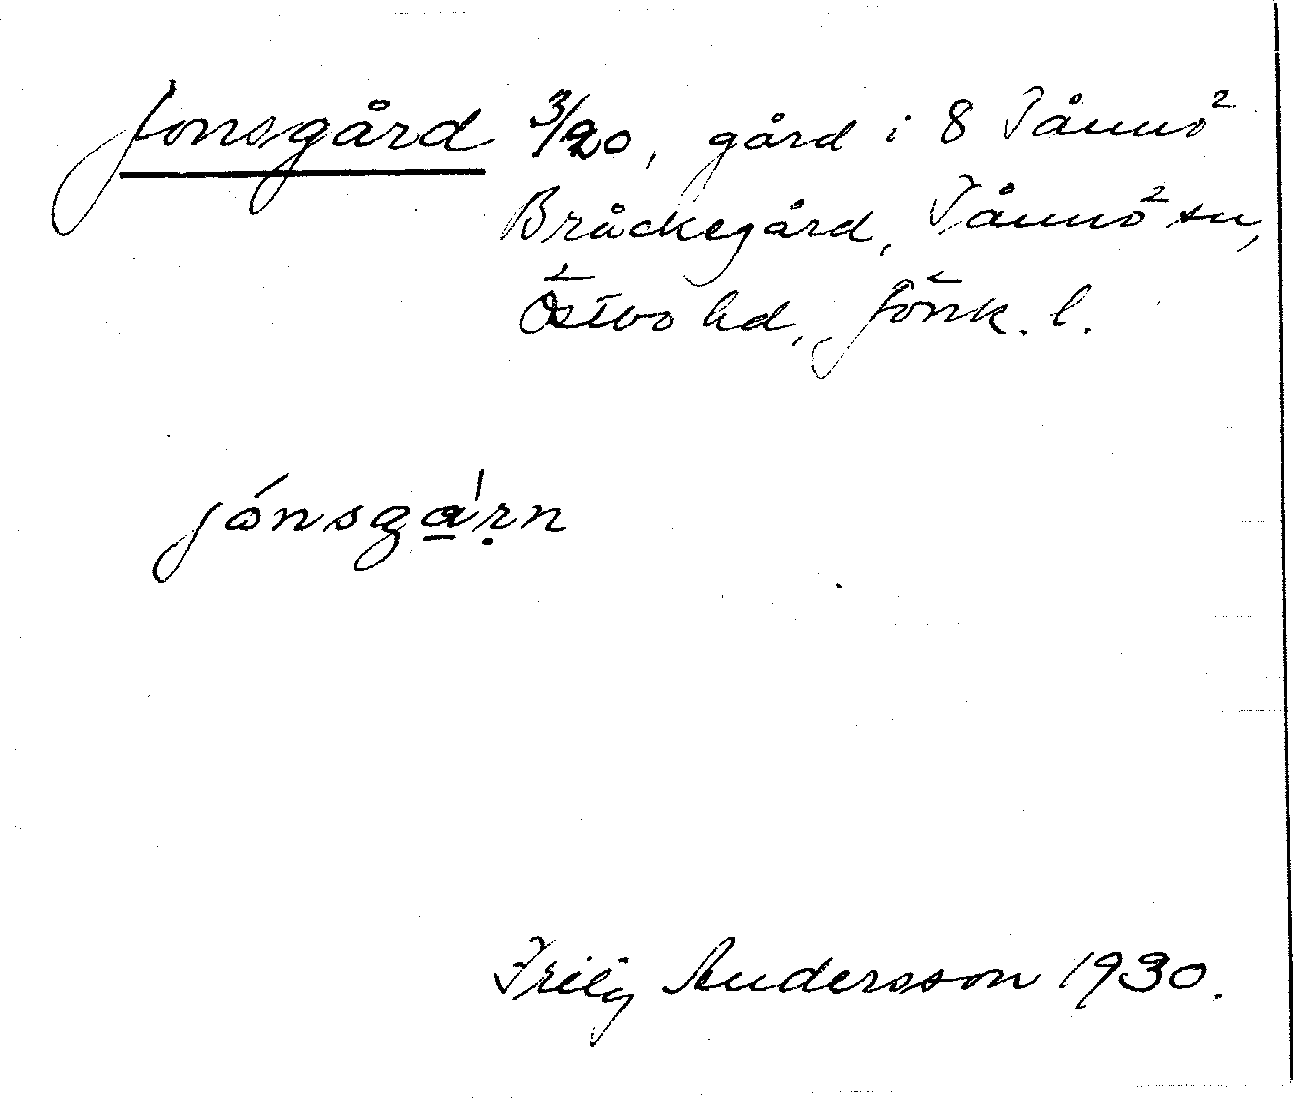 Jonsgård 3/20, gård i 8 Tånnö
Bråckegård, Tånnö sn,
Östbo hd, Jönk. l.
jónsga̠'ṛn
Andersson 1930.